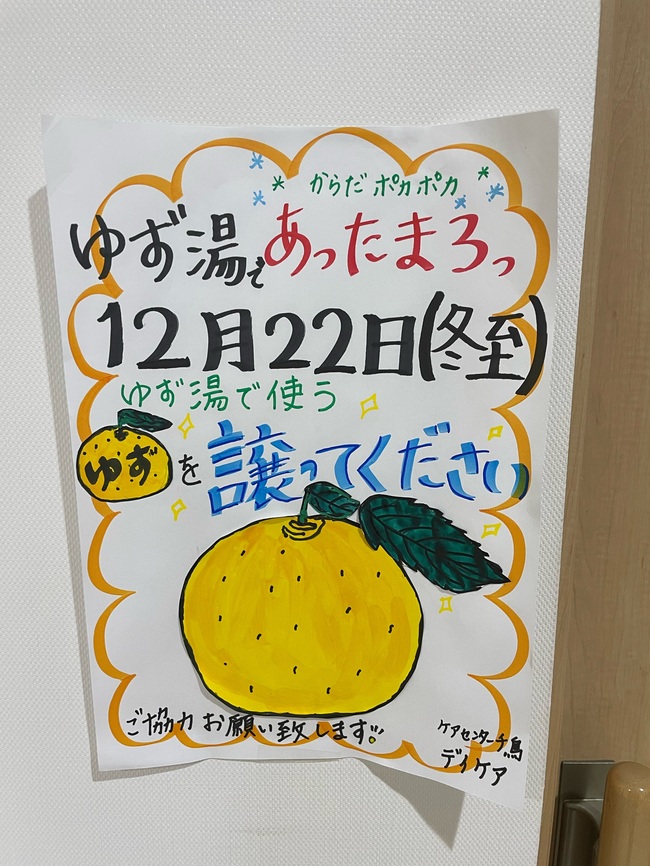 からだ ポカポカ
ゆず湯であったまろっ
12月22日(冬至)
ゆず湯で使う
ゆずを譲ってください
ご協力お願い致します!!
ケアセンター千鳥
デイケア